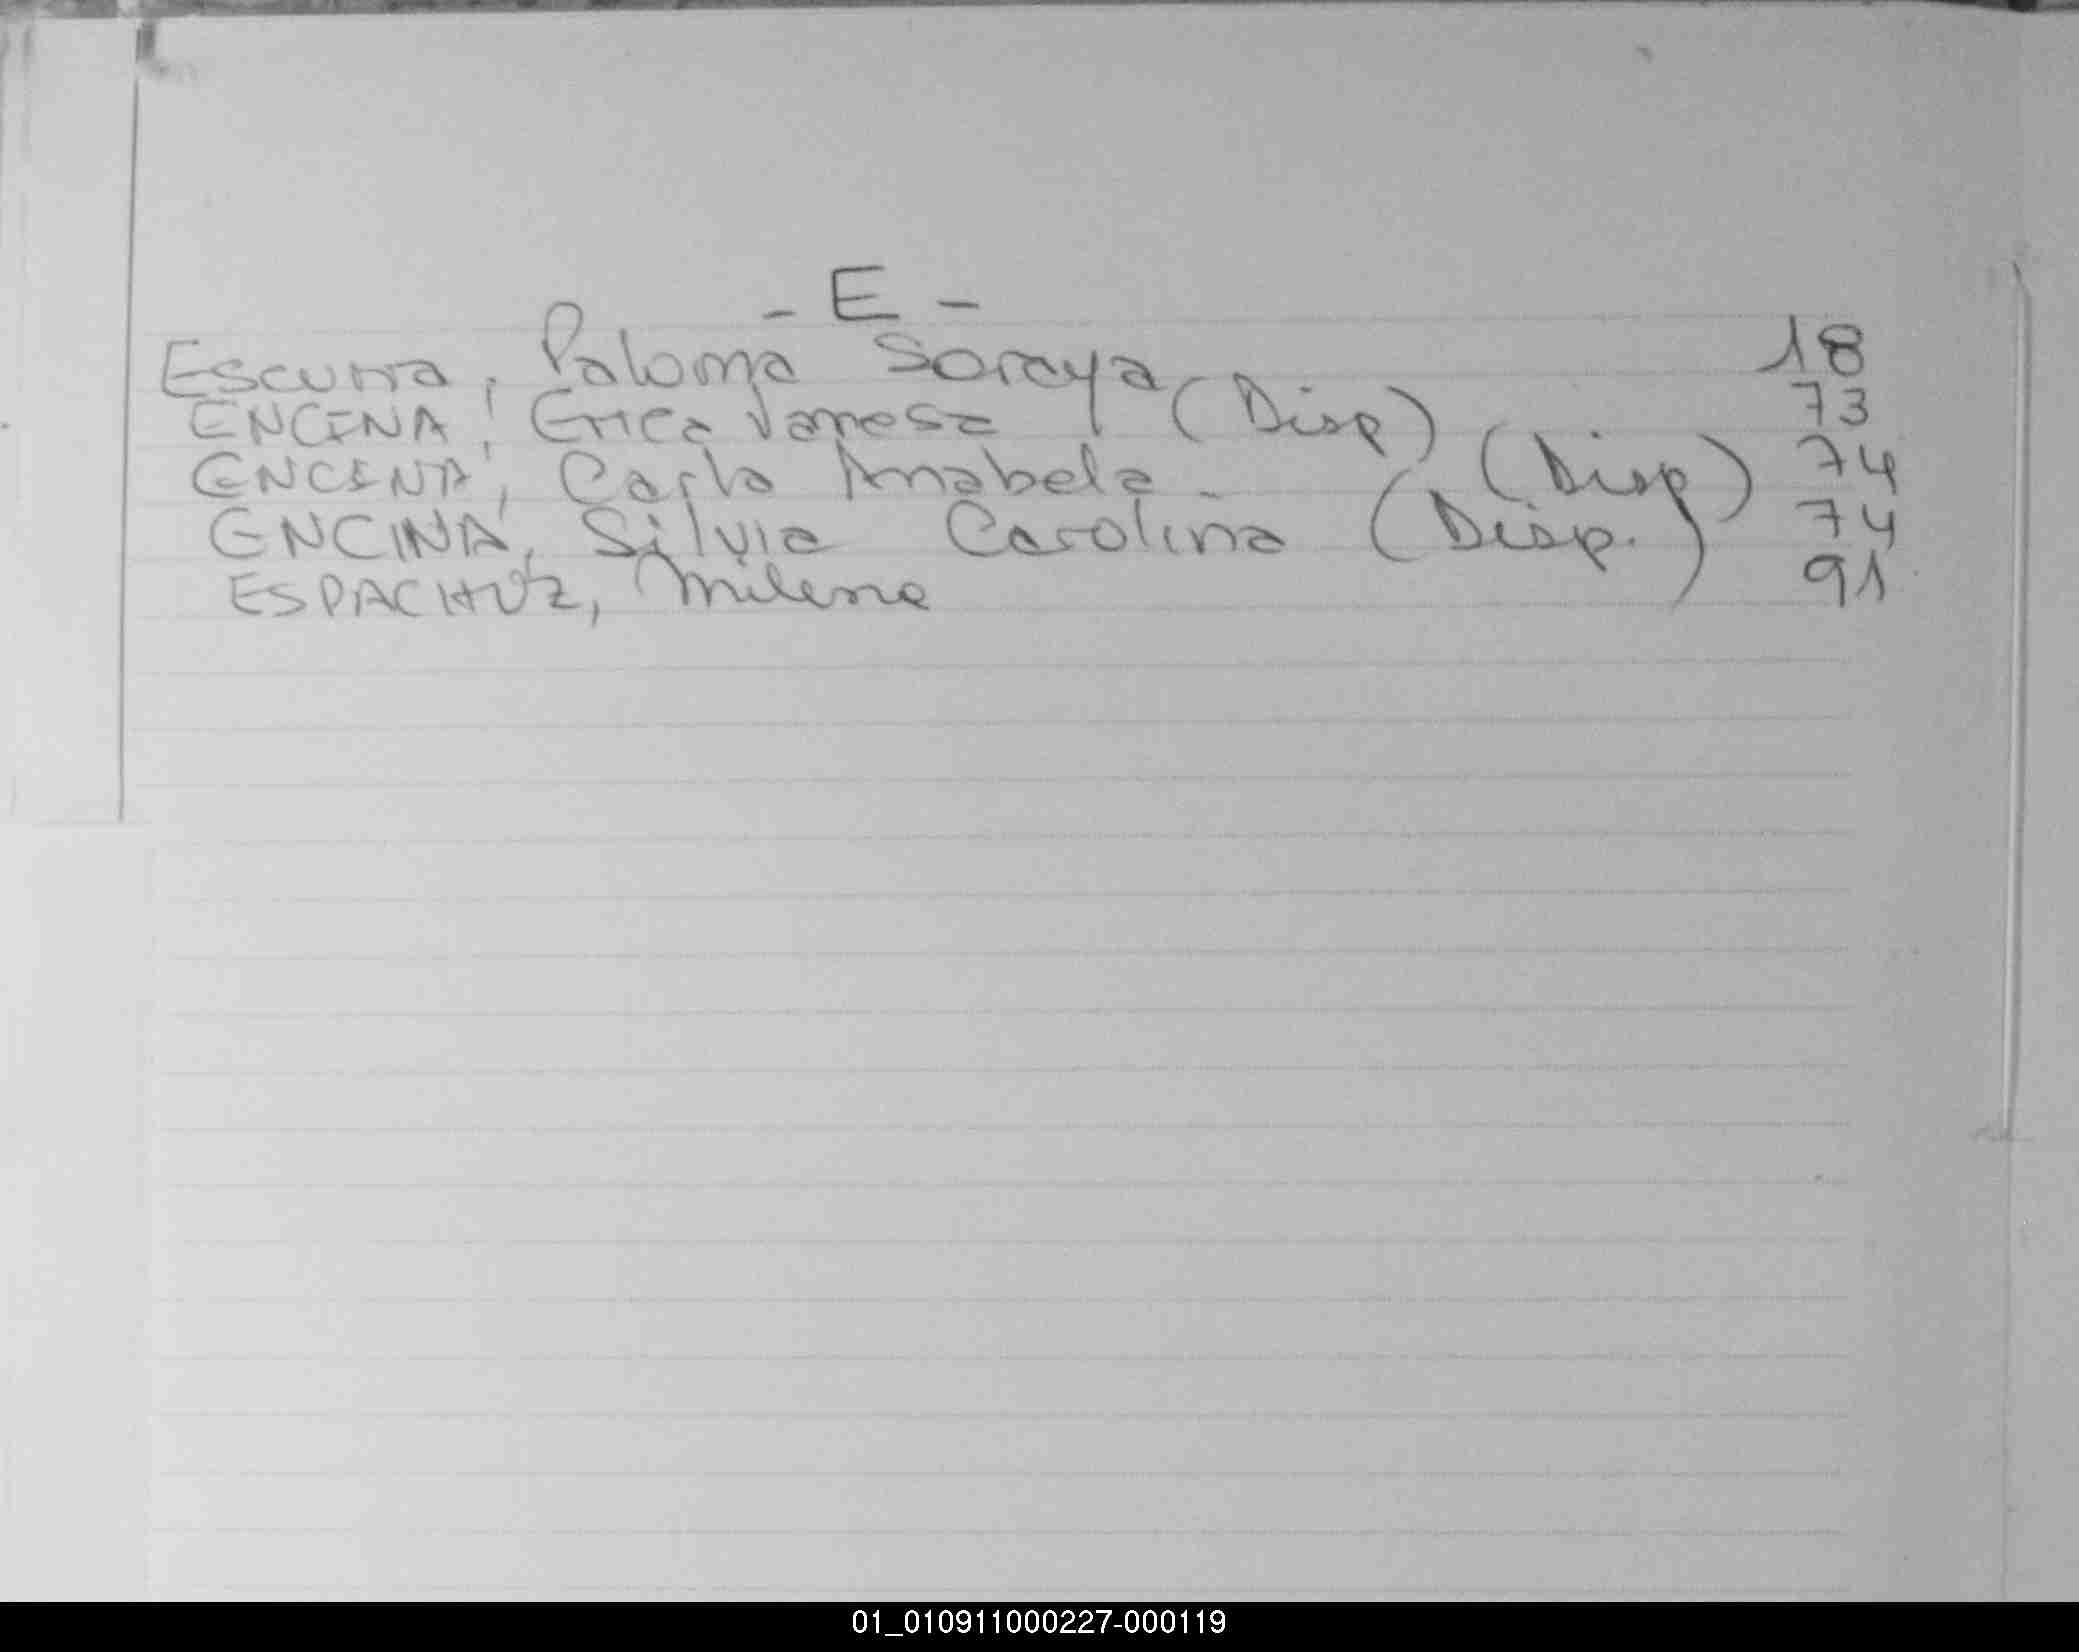 - E -
Escurra, Paloma Soraya 18
ENCINA, Erica Vanesa (Disp) 73
ENCINA, Carla Anabela - (Disp) 74
ENCINA, Silvia Carolina (Disp.) 74
ESPACHUZ, Milena 91
01_010911000227-000119